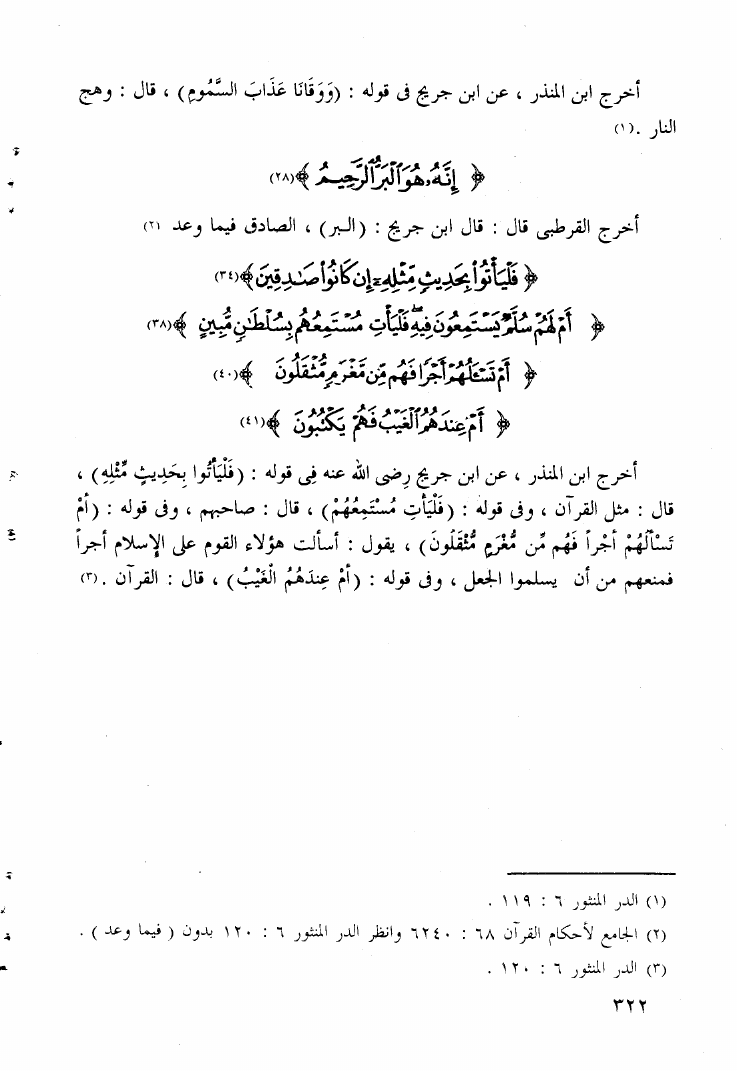 أخرج ابن المنذر ، عن ابن جريج فى قوله : (وَوَقَانَا عَذَابَ السَّمُومِ) ، قال : وهج
النار .(١)
﴿ إِنَّهُۥ هُوَ ٱلْبَرُّ ٱلرَّحِيمُ ﴾(٢٨)
أخرج القرطبى قال : قال ابن جريج : (البر) ، الصادق فيما وعد (٢)
﴿ فَلْيَأْتُوا۟ بِحَدِيثٍ مِّثْلِهِۦٓ إِن كَانُوا۟ صَـٰدِقِينَ ﴾(٣٤)
﴿ أَمْ لَهُمْ سُلَّمٌ يَسْتَمِعُونَ فِيهِ ۖ فَلْيَأْتِ مُسْتَمِعُهُم بِسُلْطَـٰنٍ مُّبِينٍ ﴾(٣٨)
﴿ أَمْ تَسْـَٔلُهُمْ أَجْرًا فَهُم مِّن مَّغْرَمٍ مُّثْقَلُونَ ﴾(٤٠)
﴿ أَمْ عِندَهُمُ ٱلْغَيْبُ فَهُمْ يَكْتُبُونَ ﴾(٤١)
أخرج ابن المنذر ، عن ابن جريج رضى الله عنه فى قوله : (فَلْيَأْتُوا بِحَدِيثٍ مِّثْلِهِ) ،
قال : مثل القرآن ، وفى قوله : (فَلْيَأْتِ مُسْتَمِعُهُمْ) ، قال : صاحبهم ، وفى قوله : (أَمْ
تَسْأَلُهُمْ أَجْراً فَهُم مِّن مُّغْرَمٍ مُّثْقَلُونَ) ، يقول : أسألت هؤلاء القوم على الإسلام أجراً
فمنعهم من أن يسلموا الجعل ، وفى قوله : (أَمْ عِندَهُمُ الْغَيْبُ) ، قال : القرآن .(٣)
(١) الدر المنثور ٦ : ١١٩ .
(٢) الجامع لأحكام القرآن ٦٨ : ٦٢٤٠ وانظر الدر المنثور ٦ : ١٢٠ بدون ( فيما وعد ) .
(٣) الدر المنثور ٦ : ١٢٠ .
٣٢٢